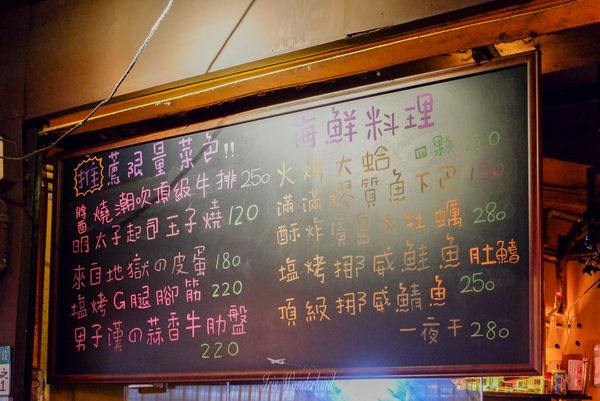 主打 薦限量菜色!!
醬燒潮吹頂級牛排 250
明太子起司玉子燒 120
來自地獄の皮蛋 180
塩烤G腿腳筋 220
男子漢の蒜香牛肋盤
220
海鮮料理
火烤大蛤 四顆 120
滿滿膠質魚下巴 150
酥炸廣島大牡蠣 280
塩烤挪威鮭魚肚鰭
250
頂級挪威鯖魚
一夜干 280
Iris Wonderland